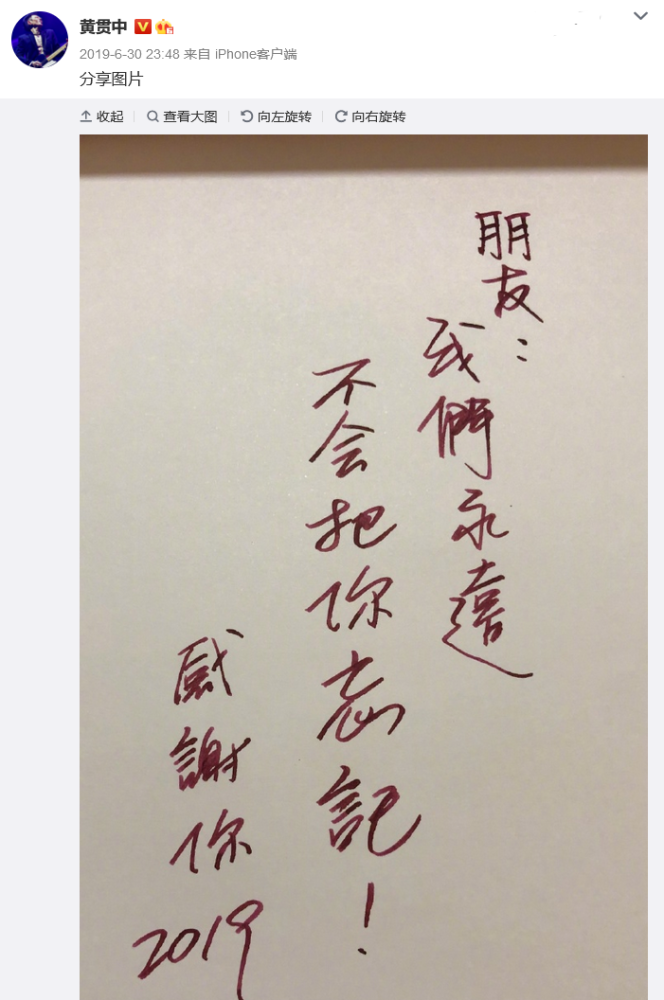 黄贯中
2019-6-30 23:48 来自 iPhone客户端
分享图片
收起 查看大图 向左旋转 向右旋转
朋友：
我們永遠
不会把你忘記！
感謝你
2019